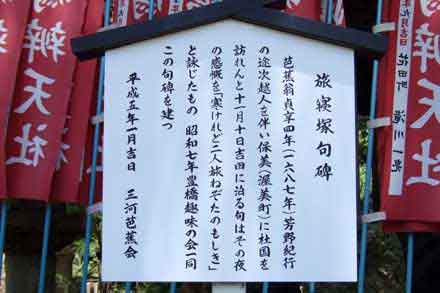 旅寝塚句碑
芭蕉翁貞享四年(一六八七年)芳野紀行
の途次越人を伴い保美(渥美町)に杜国を
訪れんと十一月十日吉田に泊る句はその夜
の感慨を「寒けれど二人旅ねぞたのもしき」
と詠じたもの 昭和七年豊橋趣味の会一同
この句碑を建つ
平成五年一月吉日 三河芭蕉会
年九月吉日
花田町
弁天社
辨天社